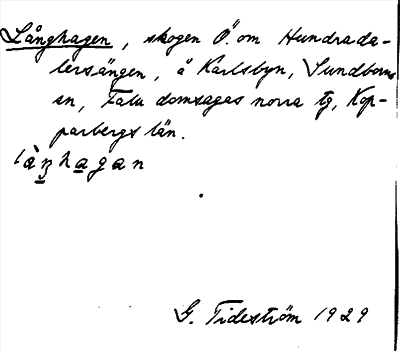 Långhagen, skogen Ö. om Hundrada-
lersängen, å Karlsbyn, Sundborns
sn, Falu domsagas norra tg, Kop-
parbergs län.
làŋhagan
G. Tideström 1929